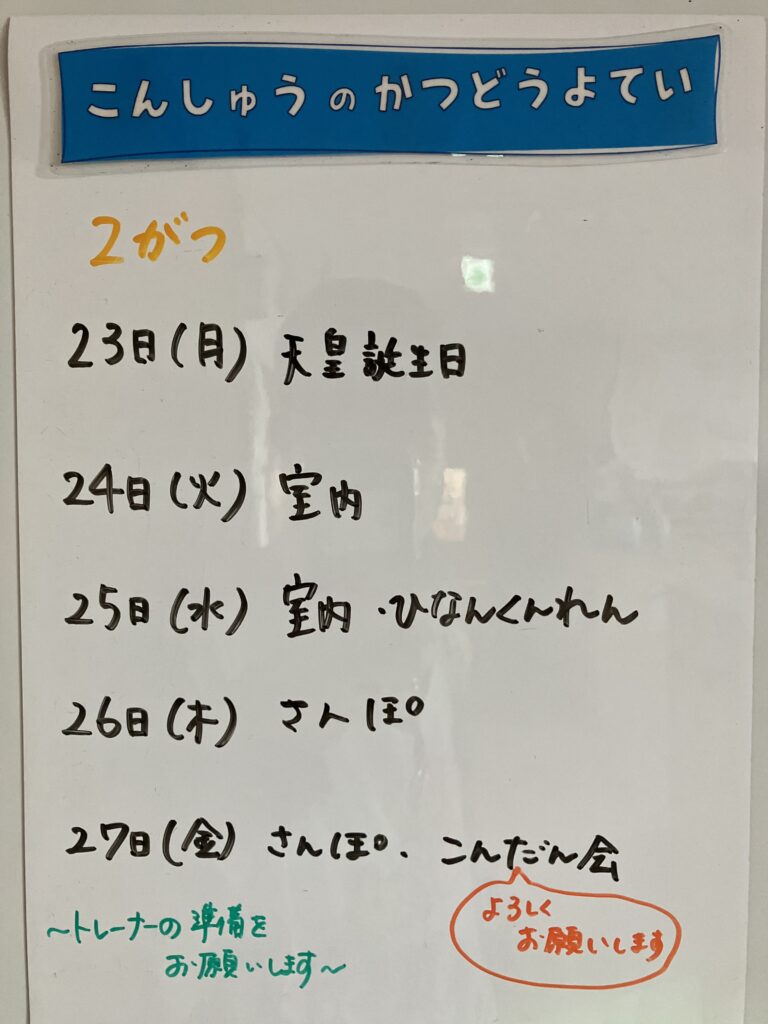 こんしゅうのかつどうよてい
2がつ
23日(月) 天皇誕生日
24日(火) 室内
25日(水) 室内・ひなんくんれん
26日(木) さんぽ
27日(金) さんぽ、こんだん会
よろしく
お願いします
~トレーナーの準備を
お願いします~